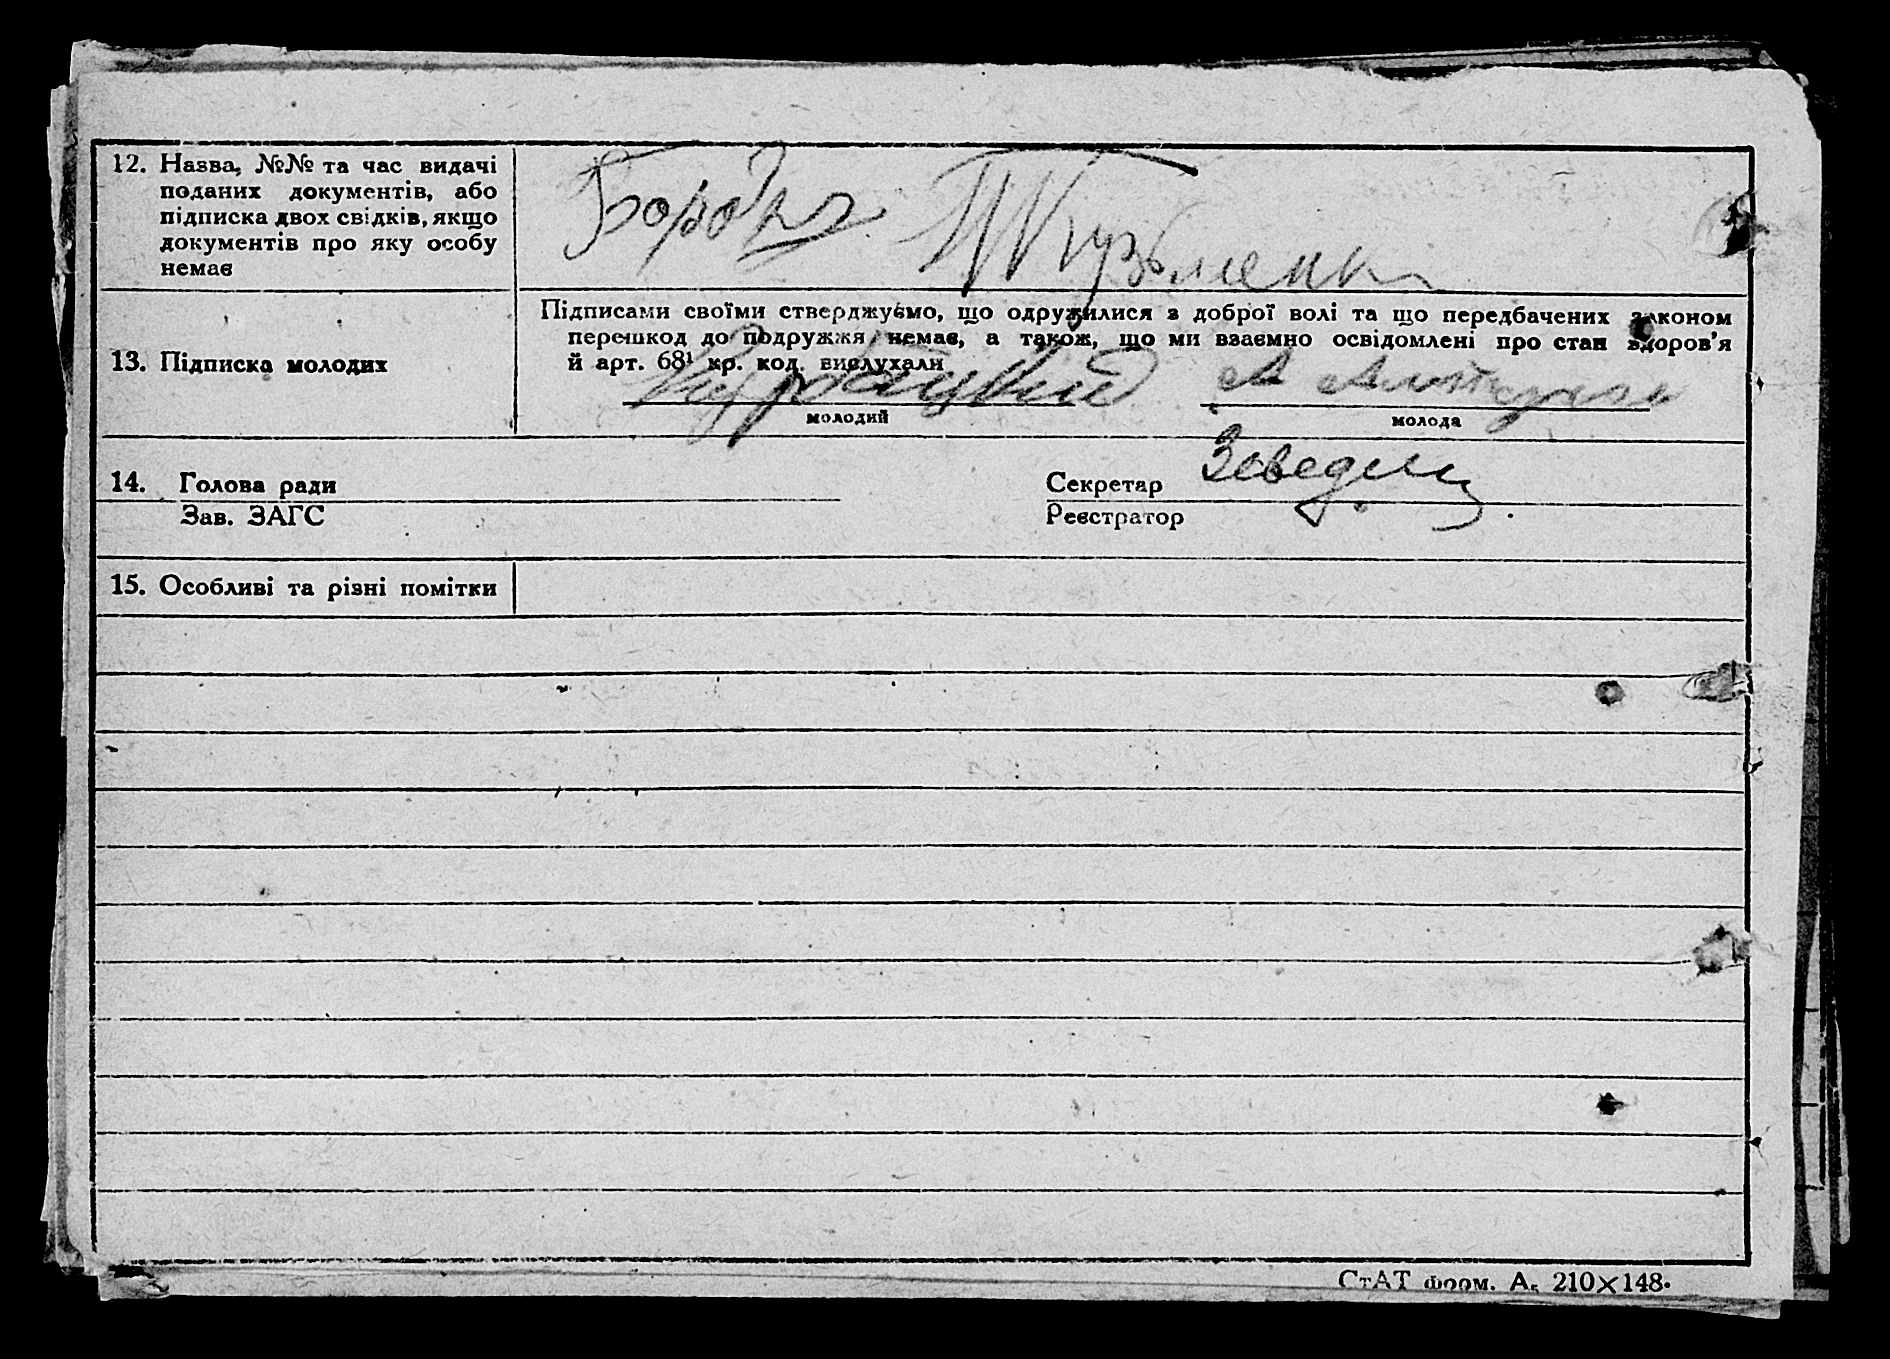 12. Назва, №№ та час видачі
поданих документів, або
підписка двох свідків, якщо
документів про яку особу
немає
Кузьменк
Підписами своїми стверджуємо, що одружилися з доброї волі та що передбачених законом
перешкод до подружжя немає, а також, що ми взаємно освідомлені про стан здоров'я
й арт. 68¹ кр. код. вислухали
13. Підписка молодих
молодий
молода
14. Голова ради
Секретар
Зав. ЗАГС
Реєстратор
15. Особливі та різні помітки
СтАТ форм. А₅ 210×148.